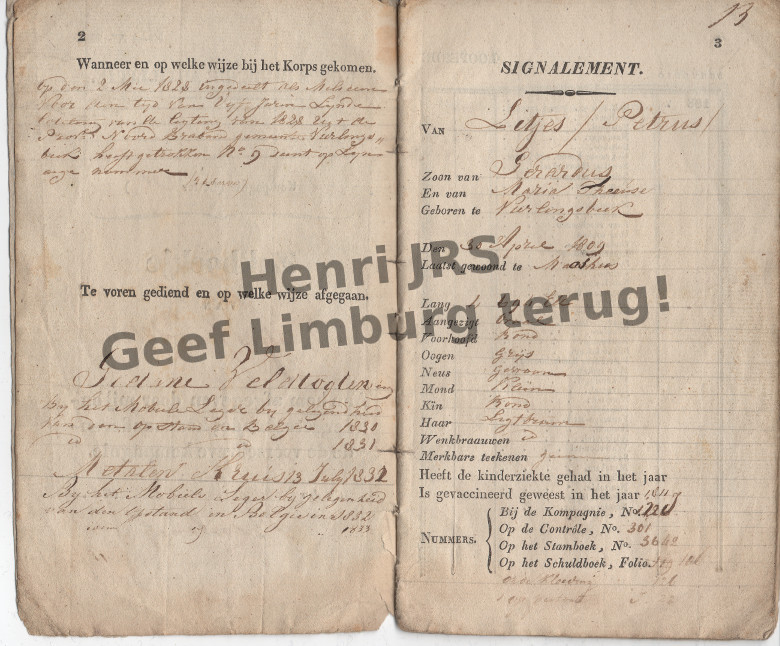 2
Wanneer en op welke wijze bij het Korps gekomen.
op den 2 Mei 1828 ingedeelt als Milicien
voor den tyd van vyf Jaren
ligting van de ligting van 1828 uyt de
Prov. Noord Braband gemeente Vierlings„
beek heeft getrokken No. 9 dient op zyn
eige nommer
Te voren gediend en op welke wijze afgegaan.
Gedane Veldtogten
By het Mobiele Leger by gelegenheid
van den opstand der Belgen 1830
id id 1831
Metalen Kruis 13 July 1832
By het Mobiele Leger by gelegenheid
van den Opstand in Belgie in 1832
1833
13
3
SIGNALEMENT.
VAN Litjes / Petrus /
Zoon van Gerardus
En van Maria Theeuse
Geboren te Vierlongsbeek
Den 30 April 1809
Laatst gewoond te
Lang 1
Aangezigt
Voorhoofd Rond
Oogen Grijs
Neus Gewoon
Mond Klein
Kin Rond
Haar Ligtbruin
Wenkbraauwen id
Merkbare teekenen geen
Heeft de kinderziekte gehad in het jaar
Is gevaccineerd geweest in het jaar
NUMMERS.
Bij de Kompagnie, No.
Op de Contrôle, No. 301
Op het Stamboek, No. 3642
Op het Schuldboek, Folio.
Henri JRS
Geef Limburg terug!